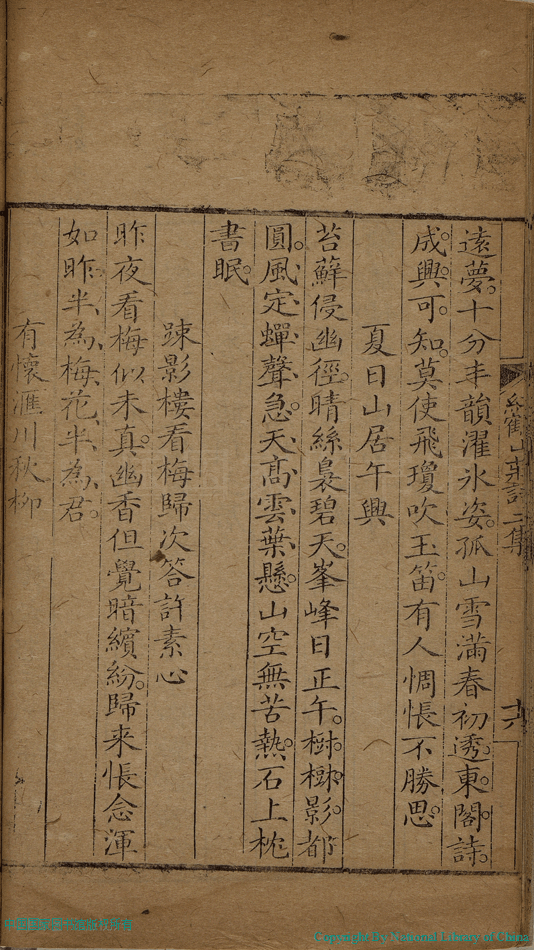 遠夢十分丰韻濯氷姿孤山雪滿春初透東閣詩
成興可知莫使飛瓊吹玉笛有人惆悵不勝思
夏日山居午興
苔蘚侵幽徑晴絲裊碧天峯峰日正午樹樹影都
圓風定蟬聲急天高雲葉懸山空無苦熱石上枕
書眠
踈影樓看梅歸次答許素心
昨夜看梅似未真幽香但覺暗繽紛歸来悵念渾
如昨半為梅花半為君
有懷滙川秋柳
山草詩二集
十六
Copyright By National Library of China